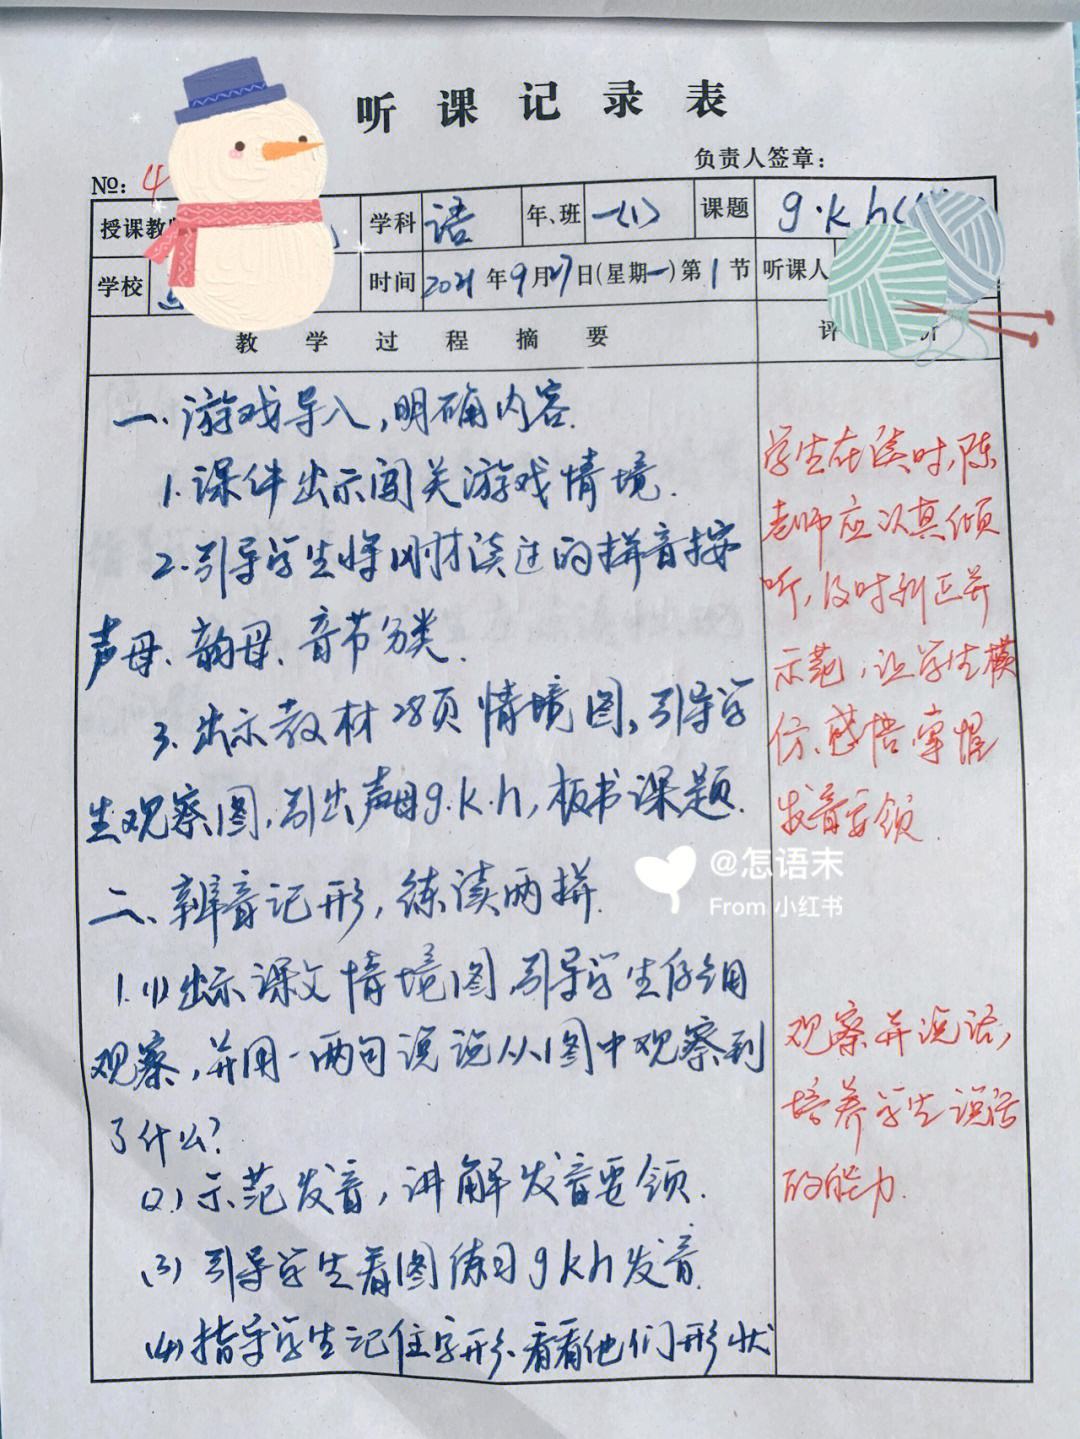 听课记录表
负责人签章：
№：4
授课教 学科 语 年、班 一(1) 课题 g·k h(
学校 时间 2021年9月27日(星期一)第1节 听课人
教学过程摘要 评
一、游戏导入，明确内容.
1.课件出示闯关游戏情境.
2.引导学生将刚才读过的拼音按
声母、韵母、音节分类.
3.出示教材28页情境图，引导学
生观察图，引出声母g.k.h，板书课题.
二、辨音记形，练读两拼.
1.(1)出示课文情境图，引导学生仔细
观察，并用一两句说说从图中观察到
了什么？
(2)示范发音，讲解发音要领.
(3)引导学生看图练习gkh发音.
(4)指导学生记住字形、看看他们形状
学生在读时，陈
老师应认真倾
听，及时纠正并
示范，让学生模
仿、感悟、掌握
发音要领.
观察并说话，
培养学生说话
的能力.
@怎语末
From 小红书